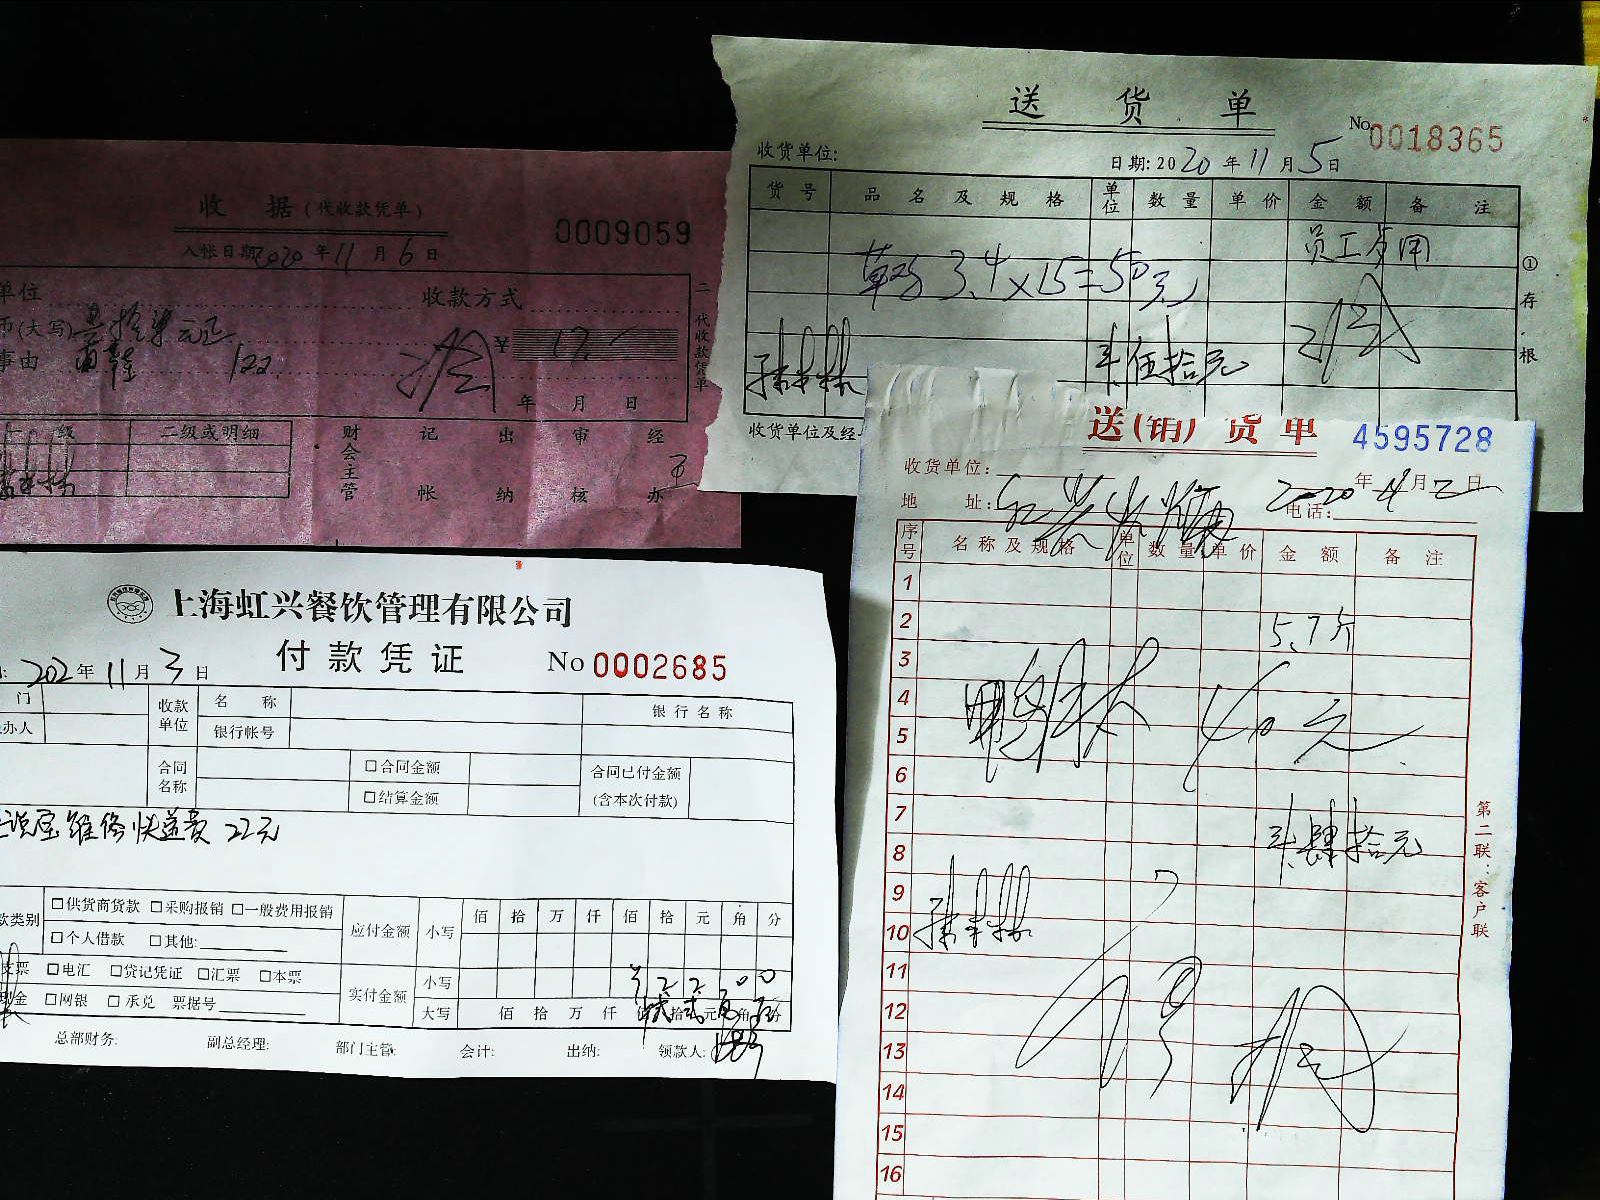 收 据 (代收款凭单)
0009059
入帐日期2020年11月6日
单位
收款方式
币(大写)
¥ 17.-
事由
年 月 日
二 代收款凭单
级
二级或明细
财会主管
记帐
出纳
审核
经办
送 货 单
No 0018365
收货单位:
日期:2020年11月5日
货号 品名及规格 单位 数量 单价 金额 备注
员工
3.4×15=50元
伍拾元
①存根
收货单位及经
送(销)货单 4595728
收货单位:
2020年 月 日
地 址:
电话:
序号 名称及规格 单位 数量 单价 金额 备注
1
2 5.7斤
3
4
5 40元
6
7
8 肆拾元
9
10
11
12
13
14
15
16
第二联:客户联
上海虹兴餐饮管理有限公司
付款凭证 No 0002685
202年11月3日
门
办人
收款单位
名 称
银行帐号
银行名称
合同名称
合同金额
结算金额
合同已付金额
(含本次付款)
维修快送费 22元
款类别
供货商货款 采购报销 一般费用报销
个人借款 其他:
支票 电汇 贷记凭证 汇票 本票
现金 网银 承兑 票据号
应付金额 小写 佰 拾 万 仟 佰 拾 元 角 分
实付金额 小写 ¥2200
大写 佰 拾 万 仟 佰 拾 元 角 分
总部财务: 副总经理: 部门主管: 会计: 出纳: 领款人: